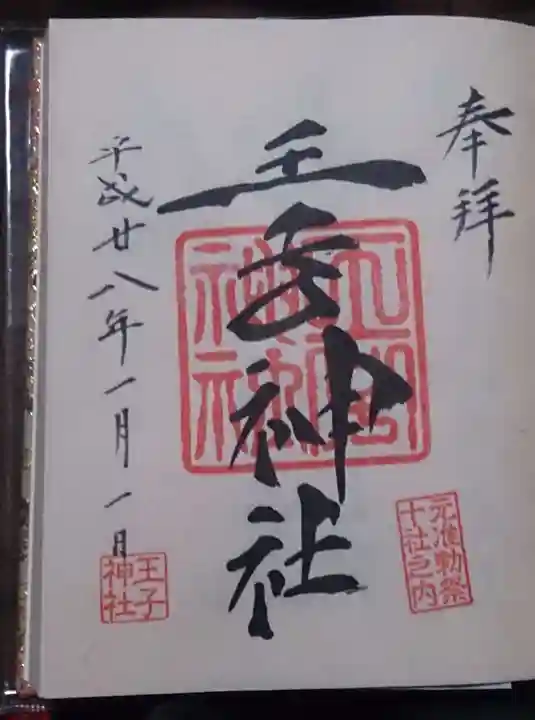 奉拝
王子神社
平成廿八年一月一日
元准勅祭
十社之内
王子
神社